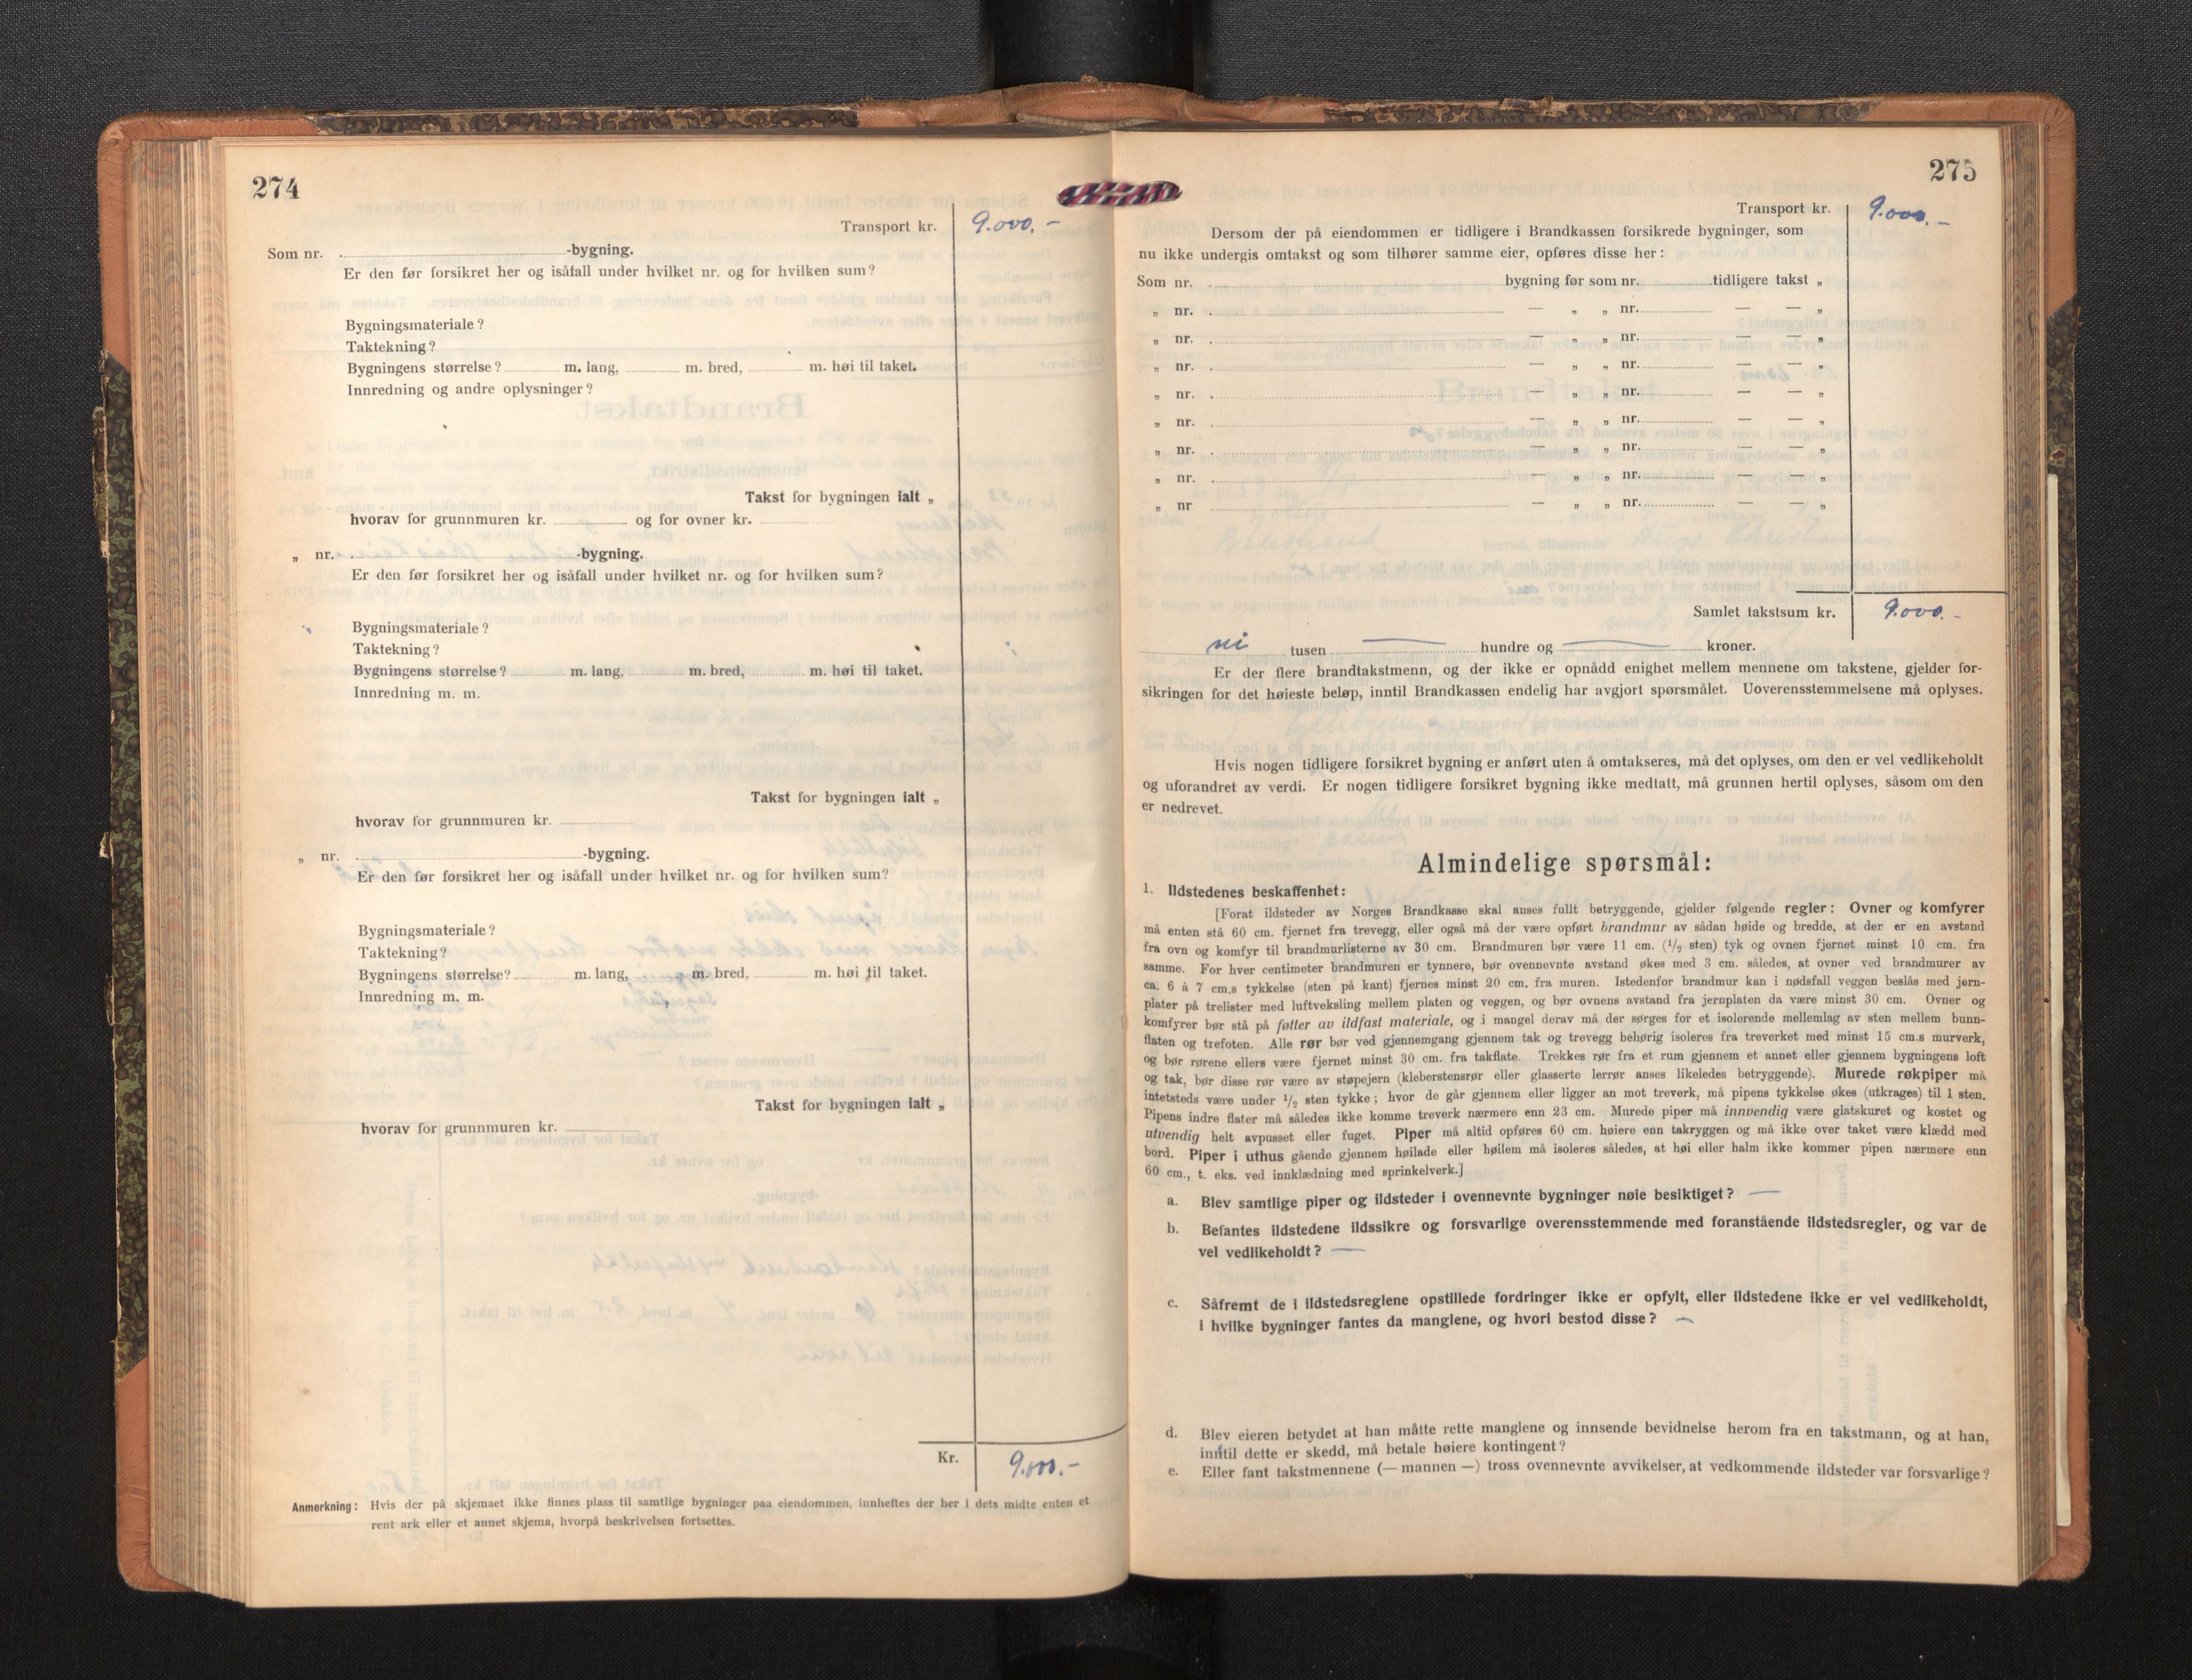 274
Transport kr. 9.000.-
Som nr. -bygning.
Er den før forsikret her og isåfall under hvilket nr. og for hvilken sum?
Bygningsmateriale?
Taktekning?
Bygningens størrelse? m. lang, m. bred, m. høi til taket.
Innredning og andre oplysninger?
Takst for bygningen ialt „
hvorav for grunnmuren kr. og for ovner kr.
„ nr. -bygning.
Er den før forsikret her og isåfall under hvilket nr. og for hvilken sum?
Bygningsmateriale?
Taktekning?
Bygningens størrelse? m. lang, m. bred, m. høi til taket.
Innredning m. m.
Takst for bygningen ialt „
hvorav for grunnmuren kr.
„ nr. -bygning.
Er den før forsikret her og isåfall under hvilket nr. og for hvilken sum?
Bygningsmateriale?
Taktekning?
Bygningens størrelse? m. lang, m. bred, m. høi til taket.
Innredning m. m.
Takst for bygningen ialt „
hvorav for grunnmuren kr.
Kr. 9.000.-
Anmerkning: Hvis der på skjemaet ikke finnes plass til samtlige bygninger paa eiendommen, innheftes der her i dets midte enten et
rent ark eller et annet skjema, hvorpå beskrivelsen fortsettes.
275
Transport kr. 9.000.-
Dersom der på eiendommen er tidligere i Brandkassen forsikrede bygninger, som
nu ikke undergis omtakst og som tilhører samme eier, opføres disse her:
Som nr. bygning før som nr. tidligere takst „
„ nr. — „ „ nr. — — „
„ nr. — „ „ nr. — — „
„ nr. — „ „ nr. — — „
„ nr. — „ „ nr. — — „
„ nr. — „ „ nr. — — „
„ nr. — „ „ nr. — — „
„ nr. — „ „ nr. — — „
„ nr — „ „ nr. — — „
Samlet takstsum kr. 9.000.-
ni tusen — hundre og — kroner.
Er der flere brandtakstmenn, og der ikke er opnådd enighet mellem mennene om takstene, gjelder for-
sikringen for det høieste beløp, inntil Brandkassen endelig har avgjort spørsmålet. Uoverensstemmelsene må oplyses.
Hvis nogen tidligere forsikret bygning er anført uten å omtakseres, må det oplyses, om den er vel vedlikeholdt
og uforandret av verdi. Er nogen tidligere forsikret bygning ikke medtatt, må grunnen hertil oplyses, såsom om den
er nedrevet.
Almindelige spørsmål:
1. Ildstedenes beskaffenhet:
[Forat ildsteder av Norges Brandkasse skal anses fullt betryggende, gjelder følgende regler: Ovner og komfyrer
må enten stå 60 cm. fjernet fra trevegg, eller også må der være opført brandmur av sådan høide og bredde, at der er en avstand
fra ovn og komfyr til brandmurlisterne av 30 cm. Brandmuren bør være 11 cm. (1/2 sten) tyk og ovnen fjernet minst 10 cm. fra
samme. For hver centimeter brandmuren er tynnere, bør ovennevnte avstand økes med 3 cm. således, at ovner ved brandmurer av
ca. 6 á 7 cm.s tykkelse (sten på kant) fjernes minst 20 cm. fra muren. Istedenfor brandmur kan i nødsfall veggen beslås med jern-
plater på trelister med luftveksling mellem platen og veggen, og bør ovnens avstand fra jernplaten da være minst 30 cm. Ovner og
komfyrer bør stå på føtter av ildfast materiale, og i mangel derav må der sørges for et isolerende mellemlag av sten mellem bunn-
flaten og trefoten. Alle rør bør ved gjennemgang gjennem tak og trevegg behørig isoleres fra treverket med minst 15 cm.s murverk,
og bør rørene ellers være fjernet minst 30 cm. fra takflate. Trekkes rør fra et rum gjennem et annet eller gjennem bygningens loft
og tak, bør disse rør være av støpejern (kleberstensrør eller glasserte lerrør anses likeledes betryggende). Murede røkpiper må
intetsteds være under 1/2 sten tykke; hvor de går gjennem eller ligger an mot treverk, må pipens tykkelse økes (utkrages) til 1 sten.
Pipens indre flater må således ikke komme treverk nærmere enn 23 cm. Murede piper må innvendig være glatskuret og kostet og
utvendig helt avpusset eller fuget. Piper må altid opføres 60 cm. høiere enn takryggen og må ikke over taket være klædd med
bord. Piper i uthus gående gjennem høilade eller høilem må isoleres således, at høi eller halm ikke kommer pipen nærmere enn
60 cm., t. eks. ved innklædning med sprinkelverk.]
a. Blev samtlige piper og ildsteder i ovennevnte bygninger nøie besiktiget? —
b. Befantes ildstedene ildssikre og forsvarlige overensstemmende med foranstående ildstedsregler, og var de
vel vedlikeholdt? —
c. Såfremt de i ildstedsreglene opstillede fordringer ikke er opfylt, eller ildstedene ikke er vel vedlikeholdt,
i hvilke bygninger fantes da manglene, og hvori bestod disse? —
d. Blev eieren betydet at han måtte rette manglene og innsende bevidnelse herom fra en takstmann, og at han,
inntil dette er skedd, må betale høiere kontingent?
e. Eller fant takstmennene (— mannen —) tross ovennevnte avvikelser, at vedkommende ildsteder var forsvarlige?